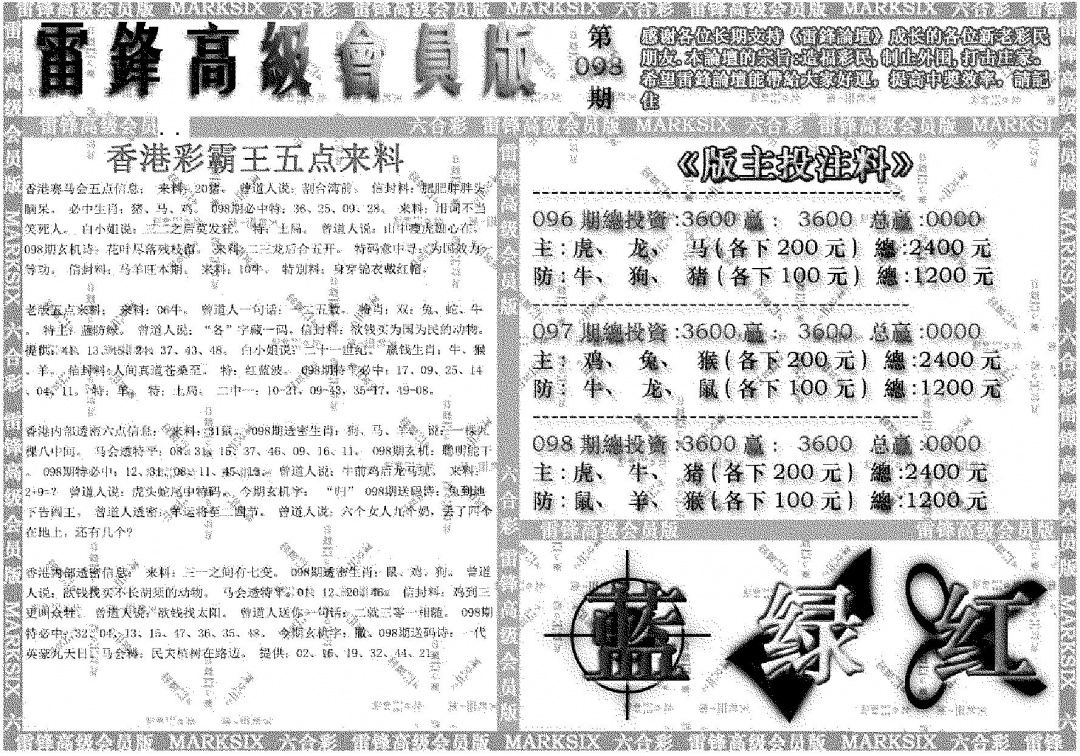 雷锋高级会员版 MARKSIX 六合彩 雷锋高级会员版 MARKSIX 六合彩 雷锋高级会员版 MARKSIX 六合彩 雷锋
雷鋒高級會員版
第
098
期
感谢各位长期支持《雷鋒論壇》成长的各位新老彩民
朋友.本論壇的宗旨:造福彩民,制止外围,打击庄家.
希望雷鋒論壇能带給大家好運，提高中獎效率，請記
住
雷锋高级会员
六合彩 雷锋高级会员版 MARKSIX 六合彩 雷锋高级会员版 MARKSIX
香港彩霸王五点来料
香港赛马会五点信息： 来料：20猪。 曾道人说：割台湾前。 信封料：肥肥胖胖头
脑呆。 必中生肖：猪、马、鸡。 098期必中特：36、25、09、28。 来料：用词不当
笑死人。 白小姐说：三三之后莫发狂。 特：土局。 曾道人说：山中瘦虎甜心在。
098期玄机诗：花叶尽落残枝留。 来料：二三龙后合五开。 特码意中寻：为国效力
等功。 信封料：马羊旺本期。 来料：10牛。 特别料：身穿锦衣戴红帽。
老版五点来料： 来料：06牛。 曾道人一句话：一二五数。 特肖：双：兔、蛇、牛
。 特土：蓝防绿。 曾道人说：“各”字藏一码。信封料：欲钱买为国为民的动物。
提供：41、13、15、24、37、43、48。 白小姐说：二十一世纪。 赢钱生肖：牛、猴
、羊。 信封料：人间真道苍桑至。 特：红蓝波。 098期特必中：17、09、25、14
、04、11。 特：羊。 特：土局。 二中一：10-21、09-43、35-17、49-08。
香港内部透密六点信息： 来料：31鼠。 098期透密生肖：狗、马、 说：一棵九
棵八中间。 马会透特平：08、31、15、37、46、09、16、11。 098期玄机：聪明能干
。 098期特必中：12、31、06、11、45、 曾道人说：牛前鸡后龙马现。 来料：
2+9=? 曾道人说：虎头蛇尾中特码。 今期玄机字： “归” 098期送码诗：兔到地
下告阎王。 曾道人透密：幸运将至二圆节。 曾道人说：六个女人九个奶，丢了四个
在地上，还有几个?
香港内部透密信息： 来料：三一之间有七变。 098期透密生肖：鼠、鸡、狗。 曾道
人说：欲钱找买不长胡须的动物。 马会透特平：01、12、20、46。 信封料：鸡到三
更叫众牲。 曾道人说：欲钱找太阳。 曾道人送你一句话：二就三零一相随。 098期
特必中：32、04、13、15、47、36、35、48。 今期玄机字：撇、098期送码诗：一代
英豪九天日。马会稀：民夫植树在路边。 提供：02、16、19、32、44、21。
《版主投注料》
096 期總投資:3600 赢： 3600 总赢:0000
主:虎、 龙、 马(各下 200 元) 總:2400 元
防:牛、 狗、 猪(各下 100 元) 總:1200 元
097 期總投資:3600 赢： 3600 总赢:0000
主: 鸡、 兔、 猴(各下 200 元) 總:2400 元
防: 牛、 龙、 鼠(各下 100 元) 總:1200 元
098 期總投資:3600 赢： 3600 总赢:0000
主:虎、 牛、 猪(各下 200 元) 總:2400 元
防:鼠、 羊、 猴(各下 100 元) 總:1200 元
雷锋高级会员版 雷锋高级会员版
藍 绿 红
雷锋高级会员版 MARKSIX 六合彩 雷锋高级会员版 MARKSIX 六合彩 雷锋高级会员版 MARKSIX 六合彩 雷锋